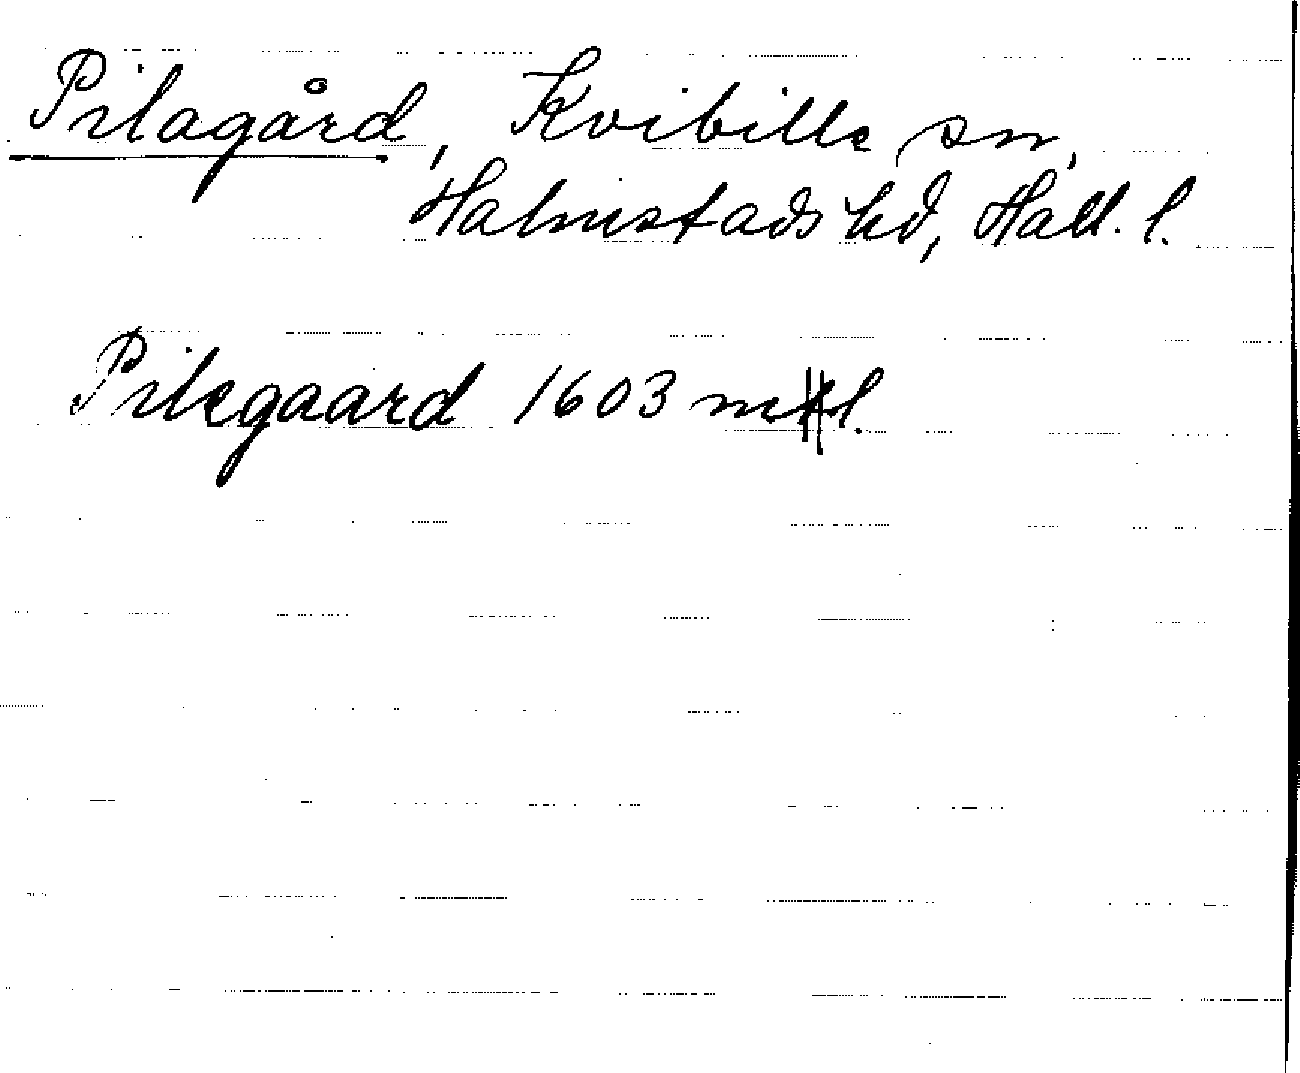 Pilagård, Kvibille sn,
Halmstads hd, Hall. l.
Pilegaard 1603 mtl.